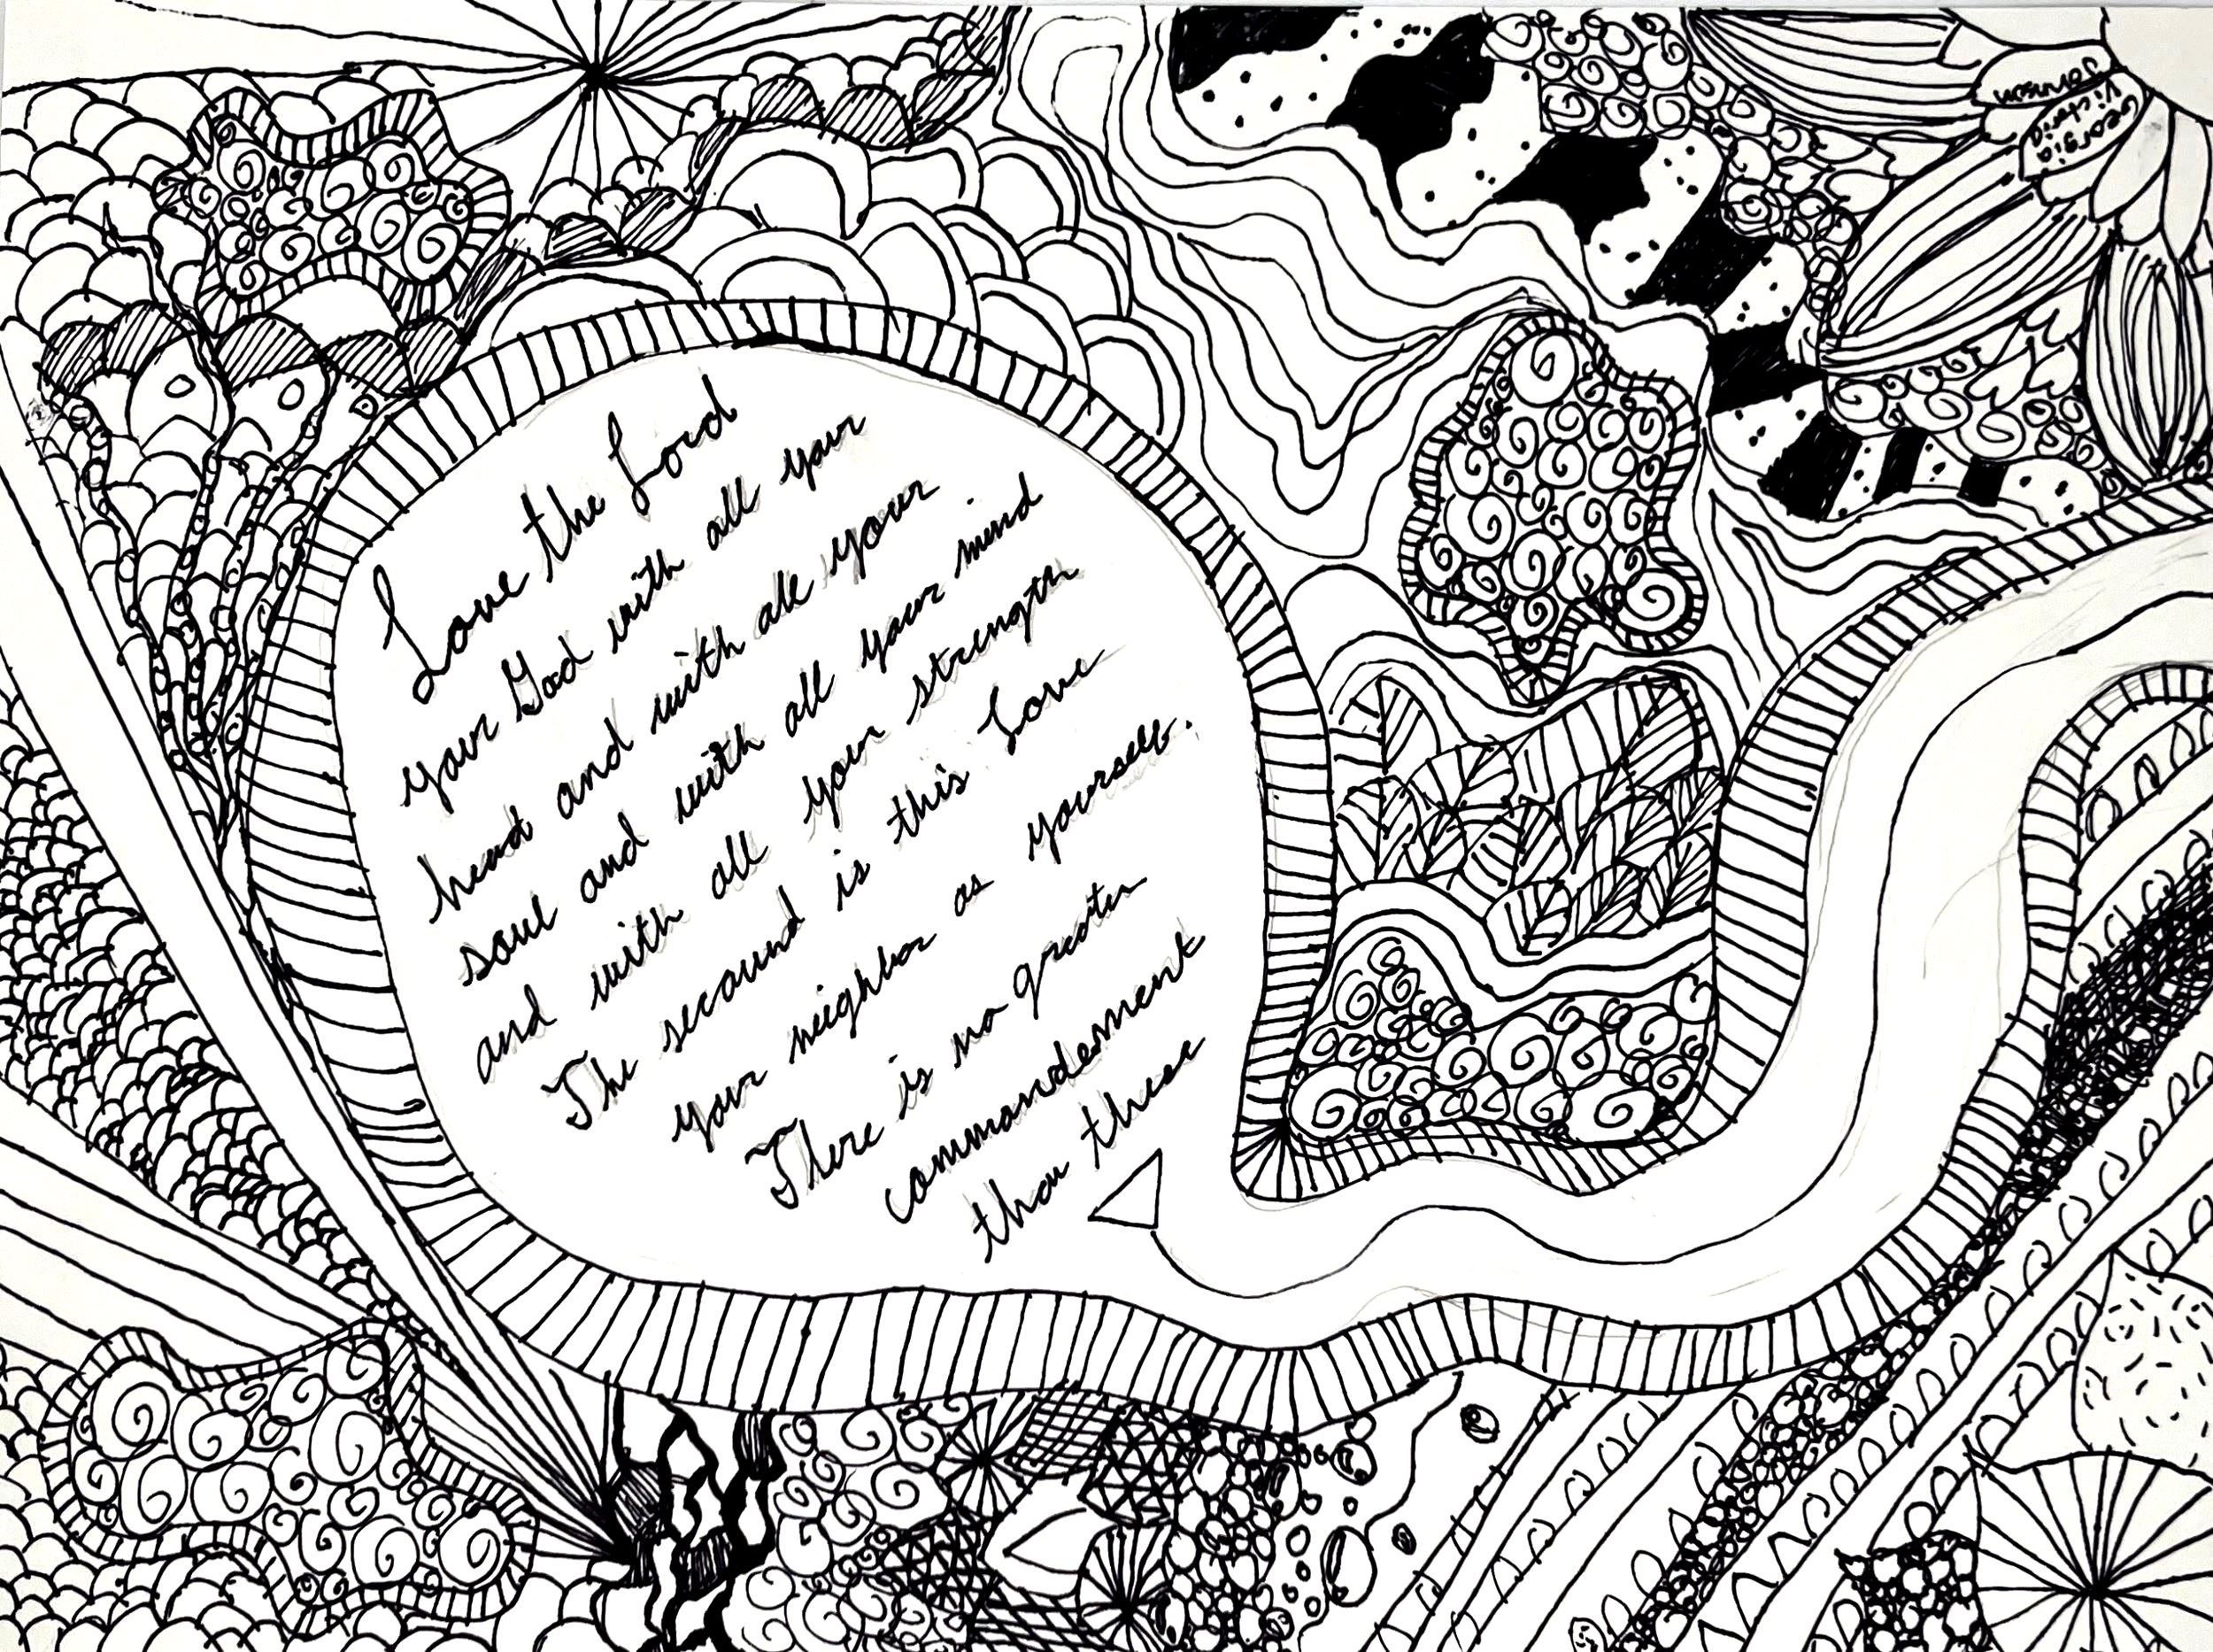 Love the Lord
your God with all your
heart and with all your
soul and with all your mind
and with all your strength
The secound is this Love
your neighbor as yourself.
There is no greater
commandement
than these
Georgia
Victoria
Johnson